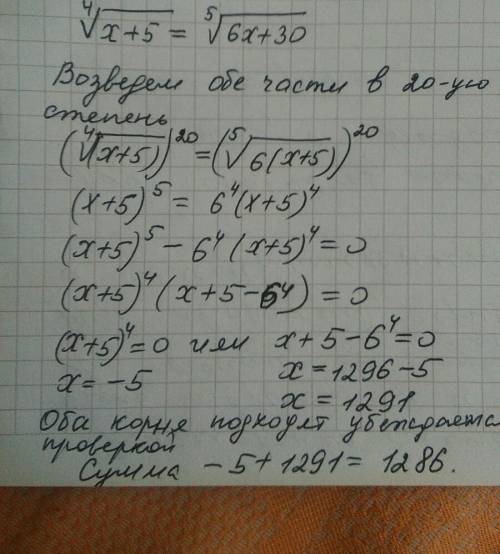 ⁴√x+5 = ⁵√6x+30
Возведем обе части в 20-ую
степень
(⁴√(x+5))²⁰ = (⁵√6(x+5))²⁰
(x+5)⁵ = 6⁴(x+5)⁴
(x+5)⁵ - 6⁴(x+5)⁴ = 0
(x+5)⁴(x+5-6⁴) = 0
(x+5)⁴=0 или x+5-6⁴=0
x = -5 x = 1296-5
x = 1291
Оба корня подходят убеждаемся
проверкой
Сумма -5+1291 = 1286.